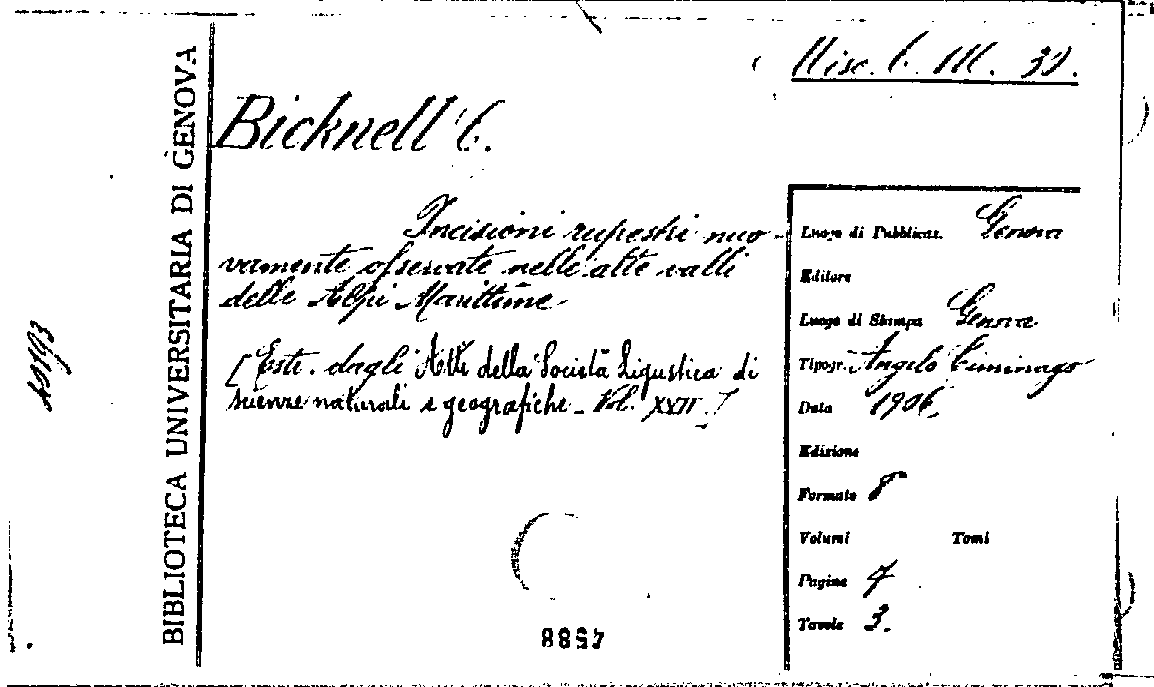 Misc. C. III. 30.
BIBLIOTECA UNIVERSITARIA DI GENOVA
Bicknell C.
Incisioni rupestri nuo-
vamente osservate nelle alte valli
delle Alpi Marittime
[Estr. dagli Atti della Società Ligustica di
scienze naturali e geografiche - Vol. XVII]
Luogo di Pubblicaz. Genova
Editore
Luogo di Stampa Genova
Tipogr. Angelo Ciminago
Data 1906.
Edizione
Formato 8°
Volumi Tomi
Pagine
Tavole 3.